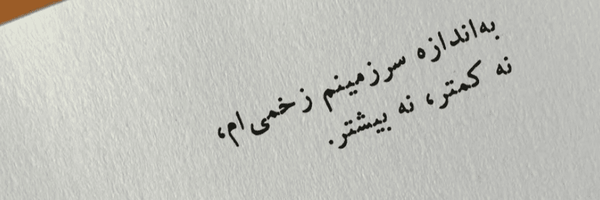 به‌اندازه سرزمینم زخمی‌ام،
نه کمتر، نه بیشتر.